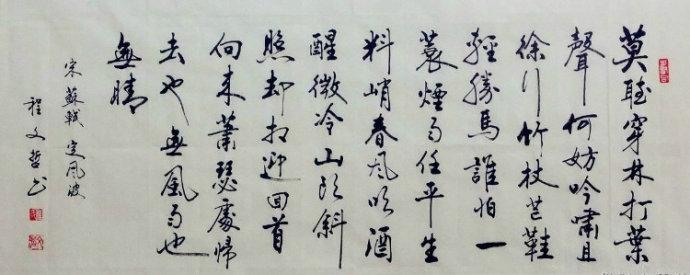 莫聽穿林打葉
聲何妨吟嘯且
徐行竹杖芒鞋
輕勝馬誰怕一
蓑煙雨任平生
料峭春風吹酒
醒微冷山頭斜
照却相迎回首
向來蕭瑟處歸
去也無風雨也
無晴
宋蘇軾定風波
程文哲书